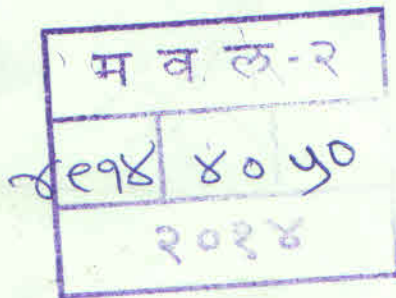 म व ल-२
४९१४ ४० ५०
२०१४